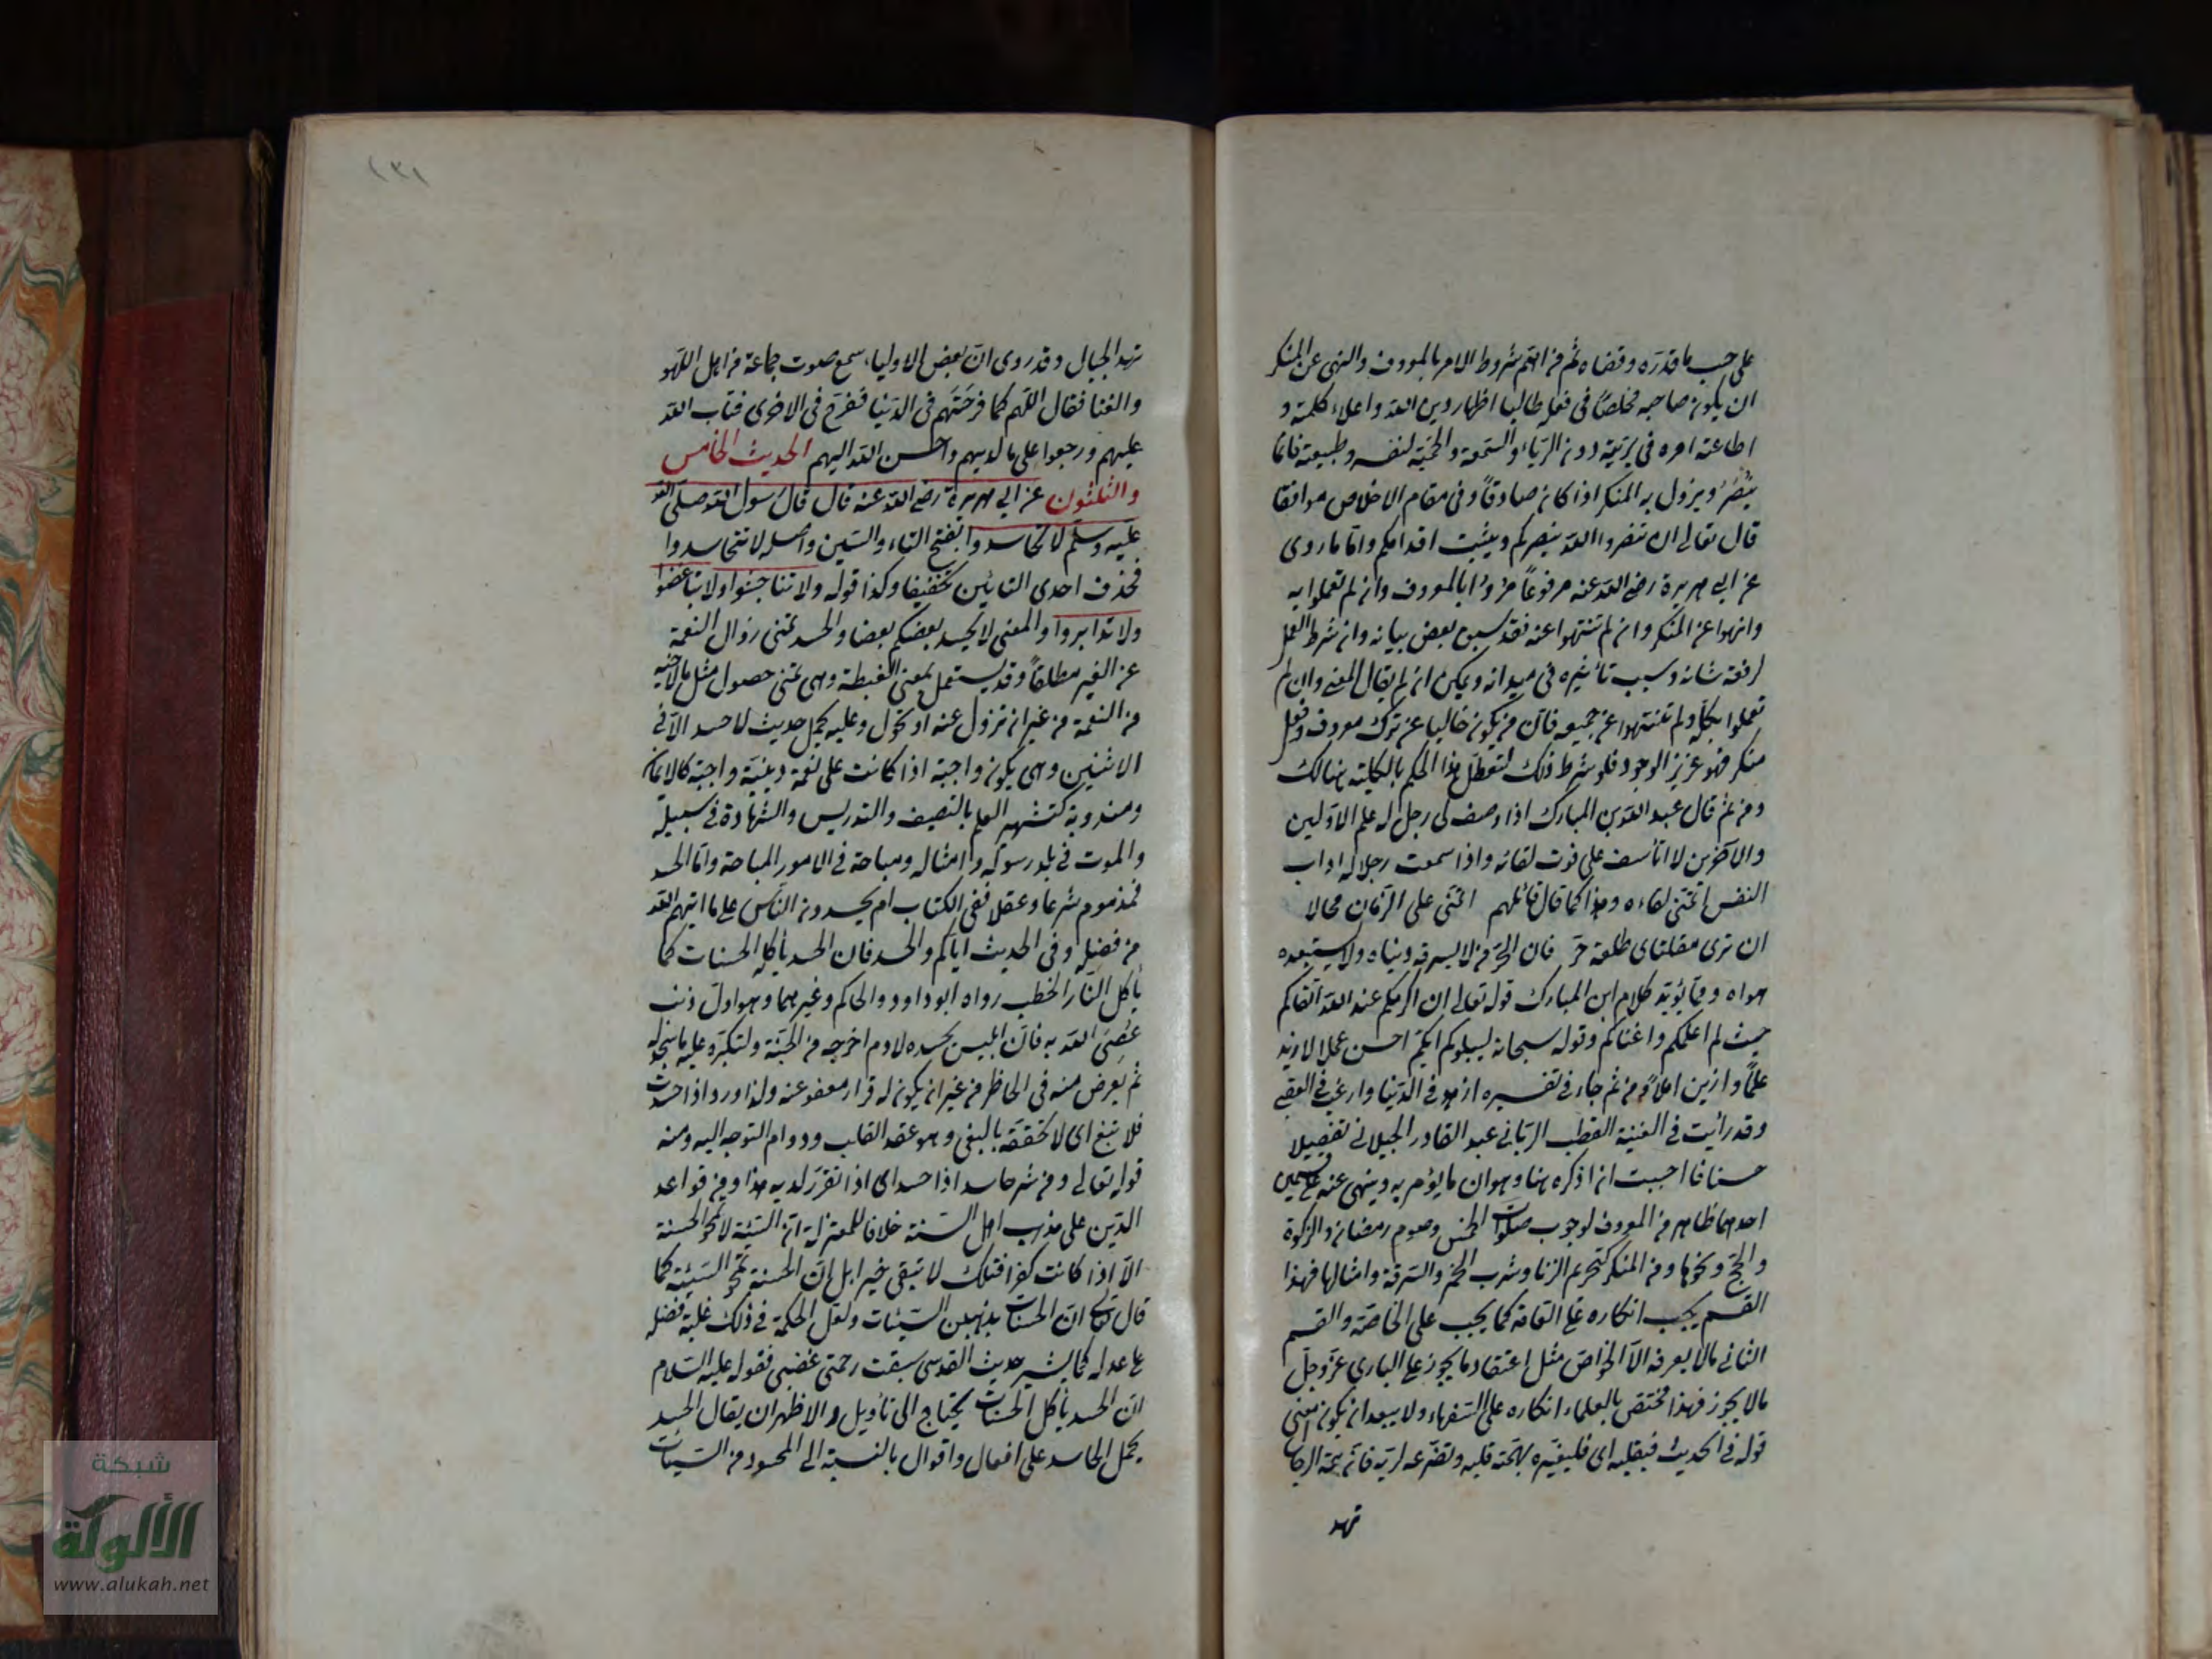 على حسب ما قدره وقضاه ثم من اهم شروط الامر بالمعروف والنهى عن المنكر
ان يكون صاحبه مخلصًا فى فعله طالبا اظهار دين الله واعلاء كلمته و
اطاعته امره فى بريته دون الرياء والسمعة والحمية لنفسه وطبيعته فانما
ينصر ويزول به المنكر اذا كان صادقًا وفى مقام الاخلاص موافقا
قال تعالى ان تنصروا الله ينصركم ويثبت اقدامكم واما ما روى
عن ابى هريرة رضى الله عنه مرفوعًا مروا بالمعروف وان لم تعملوا به
وانهوا عن المنكر وان لم تنتهوا عنه فقد سبق بعض بيانه وان شرط العمل
لرفعة شانه وسبب تأثيره فى ميدانه ويمكن ان يقال المعنى وان لم
تعملوا بكله ولم تنتهوا عن جميعه فان من يكون خاليا عن ترك معروف وفعل
منكر فهو عزيز الوجود فلو شرط ذلك لتعطل هذا الحكم بالكلية هنالك
ومن ثم قال عبد الله بن المبارك اذا وصف لى رجل له علم الاولين
والآخرين لا اتأسف على فوت لقائه واذا سمعت رجلا له اداب
النفس اتمنى لقاءه وهذا كما قال قائلهم اتمنى على الزمان محالا
ان ترى مقلتاى طلعة حر فان الحر من لا يسرقه دنياه ولا يستعبده
هواه ومما يؤيد كلام ابن المبارك قوله تعالى ان اكرمكم عند الله اتقاكم
حيث لم اعلمكم واغناكم وقوله سبحانه ليبلوكم ايكم احسن عملا لا ازيد
علمًا وازين املاً ومن ثم جاء فى تفسيره ازهد فى الدنيا وارغب فى العقبى
وقد رأيت فى الغنية للقطب الربانى عبد القادر الجيلانى تفصيلا
حسنا فاحببت ان اذكره هنا وهو ان ما يؤمر به وينهى عنه على قسمين
احدهما ظاهر من المعروف لوجوب صلوات الخمس وصوم رمضان والزكوة
والحج ونحوها ومن المنكر كتحريم الزنا وشرب الخمر والسرقة وامثالها فهذا
القسم يجب انكاره على العامة كما يجب على الخاصة والقسم
الثانى ما لا يعرفه الا الخواص مثل اعتقاد ما يجوز على البارى عز وجل
مالا يجوز فهذا مختص بالعلماء انكاره على السفهاء ولا يبعد ان يكون معنى
قوله فى الحديث فبقلبه اى فليغيره بهمة قلبه وتضرعه لربه فان همة الرجال
تهد
تهد الجبال وقد روى ان بعض الاولياء سمع صوت جماعة من اهل اللهو
والغنا فقال اللهم كما فرحتهم فى الدنيا ففرح فى الاخرى فتاب الله
عليهم ورجعوا على ما لديهم واحسن الله اليهم الحديث الخامس
والثلثون عن ابى هريرة رضى الله عنه قال قال رسول الله صلى الله
عليه وسلم لا تحاسدوا بفتح التاء والسين واصله لا تتحاسدوا
فحذف احدى التائين تخفيفا وكذا قوله ولا تناجشوا ولا تباغضوا
ولا تدابروا والمعنى لا يحسد بعضكم بعضا والحسد تمنى زوال النعمة
عن الغير مطلقًا وقد يستعمل بمعنى الغبطة وهى تمنى حصول مثل ما لاخيه
من النعمة من غير ان تزول عنه او تحول وعليه يحمل حديث لا حسد الا فى
الاثنين وهى يكون واجبة اذا كانت على نعمة دينية واجبة كالايمان
ومندوبة كتشهير العلم بالتصنيف والتدريس والشهادة فى سبيله
والموت فى بلد رسوله وامثاله ومباحة فى الامور المباحة واما الحسد
فمذموم شرعا وعقلا ففى الكتاب ام يحسدون الناس على ما اتيهم الله
من فضله وفى الحديث اياكم والحسد فان الحسد يأكل الحسنات كما
يأكل النار الحطب رواه ابو داود والحاكم وغيرهما وهو اول ذنب
عُصى الله به فان ابليس بحسده لادم اخرجه من الجنة ولتكبره عليه ما سجد له
ثم يعرض منه فى الخاطر من غير ان يكون له قرار معفو عنه ولذا ورد اذا حسدت
فلا تبغ اى لا تحققه بالبغى وهو عقد القلب ودوام التوجه اليه ومنه
قوله تعالى ومن شر حاسد اذا حسد اى اذا تقرر لديه هذا ومن قواعد
الدين على مذهب اهل السنة خلافا للمعتزلة ان السيئة لا تمحو الحسنة
الا اذا كانت كفرا فتلك لا تبقى خيرا بل ان الحسنة تمحو السيئة كما
قال تع ان الحسنات يذهبن السيئات ولعل الحكمة فى ذلك غلبة فضله
على عدله كما يشير حديث القدسى سبقت رحمتى غضبى فقوله عليه السلام
ان الحسد يأكل الحسنات يحتاج الى تأويل والاظهر ان يقال الحسد
يحمل الحاسد على افعال واقوال بالنسبة الى المحسود من السيئات
شبكة
الألوكة
www.alukah.net